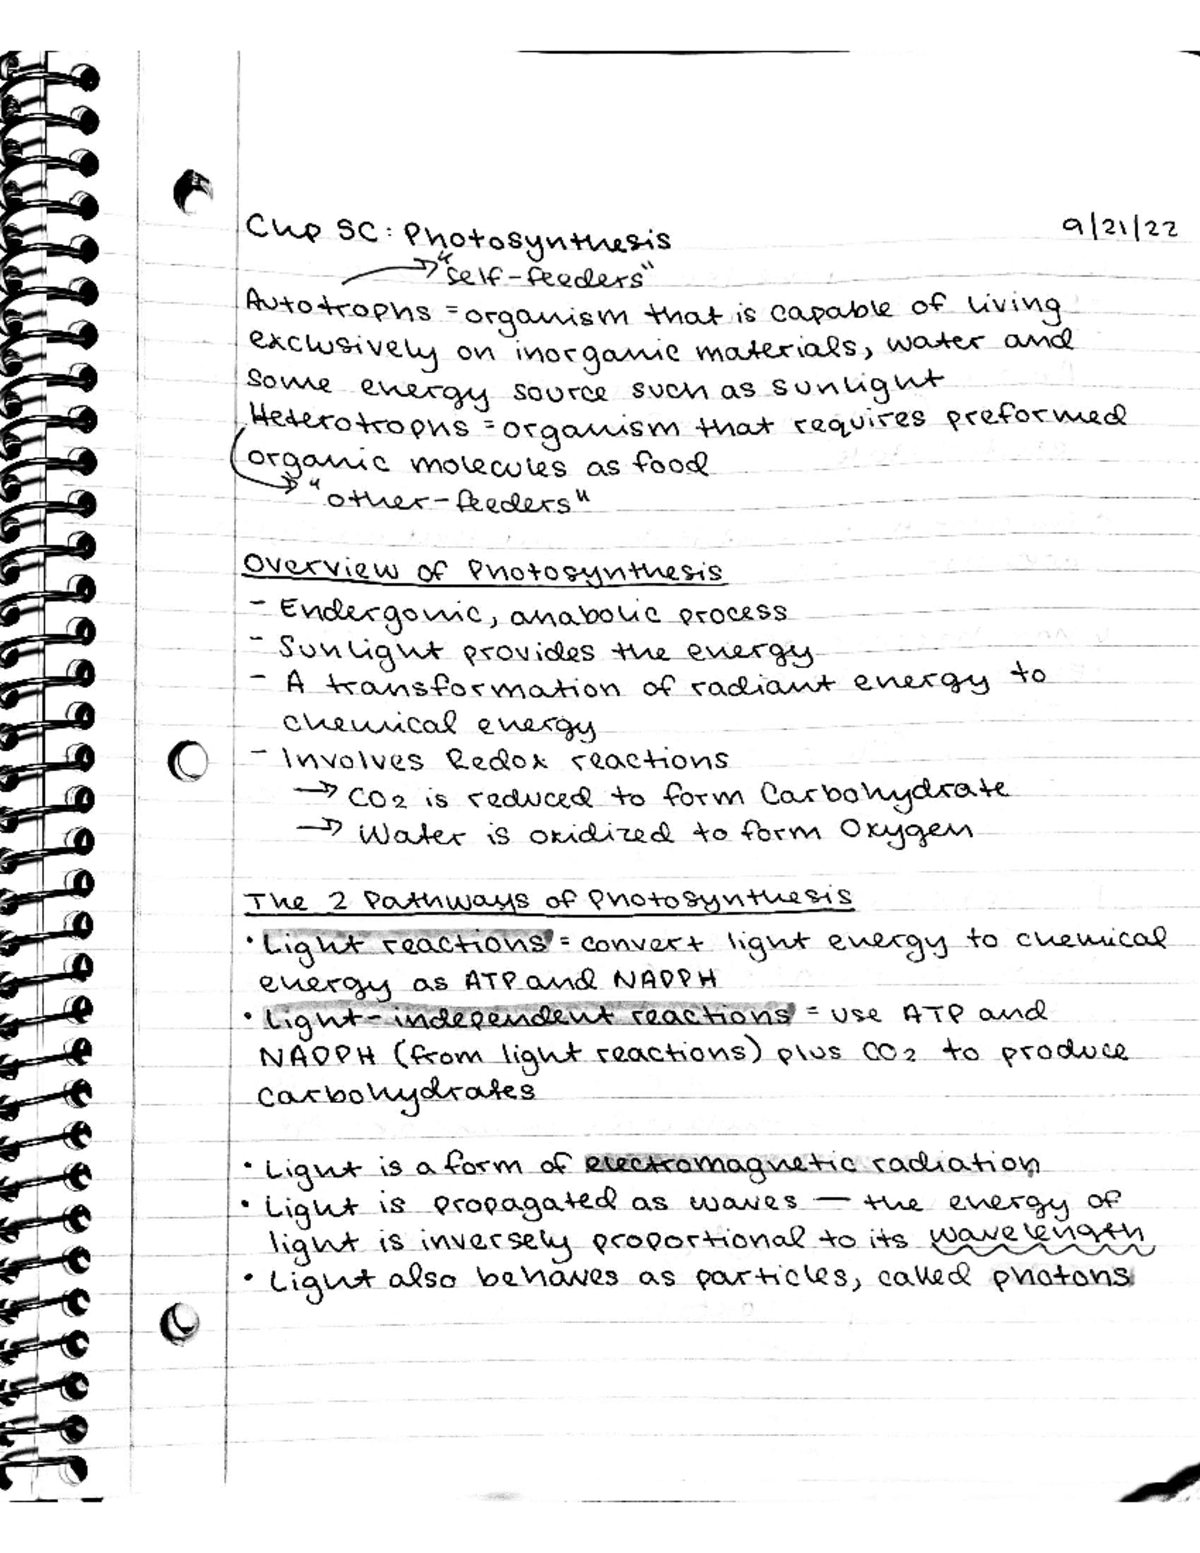 Chp 5C: Photosynthesis 9/21/22
"self-feeders"
Autotrophs = organism that is capable of living
exclusively on inorganic materials, water and
some energy source such as sunlight
Heterotrophs = organism that requires preformed
organic molecules as food
"other-feeders"
Overview of Photosynthesis
- Endergonic, anabolic process
- Sunlight provides the energy
- A transformation of radiant energy to
chemical energy
- Involves Redox reactions
→ CO2 is reduced to form Carbohydrate
→ Water is oxidized to form Oxygen
The 2 Pathways of Photosynthesis
• Light reactions = convert light energy to chemical
energy as ATP and NADPH
• Light-independent reactions = use ATP and
NADPH (from light reactions) plus CO2 to produce
carbohydrates
• Light is a form of electromagnetic radiation
• Light is propagated as waves — the energy of
light is inversely proportional to its wavelength
• Light also behaves as particles, called photons